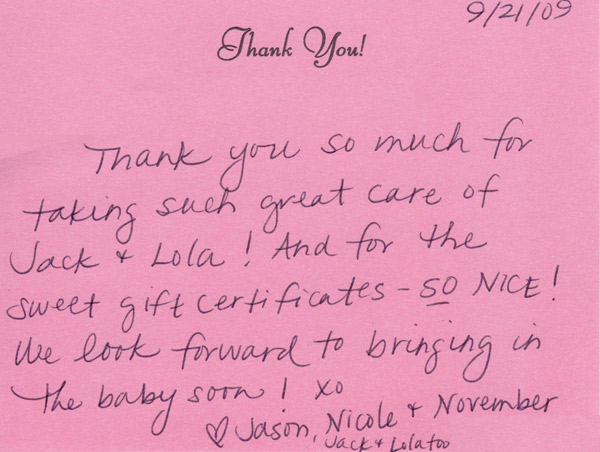 9/21/09
Thank You!
Thank you so much for
taking such great care of
Jack + Lola! And for the
sweet gift certificates - SO NICE!
We look forward to bringing in
the baby soon! xo
♡ Jason, Nicole + November
Jack + Lola too